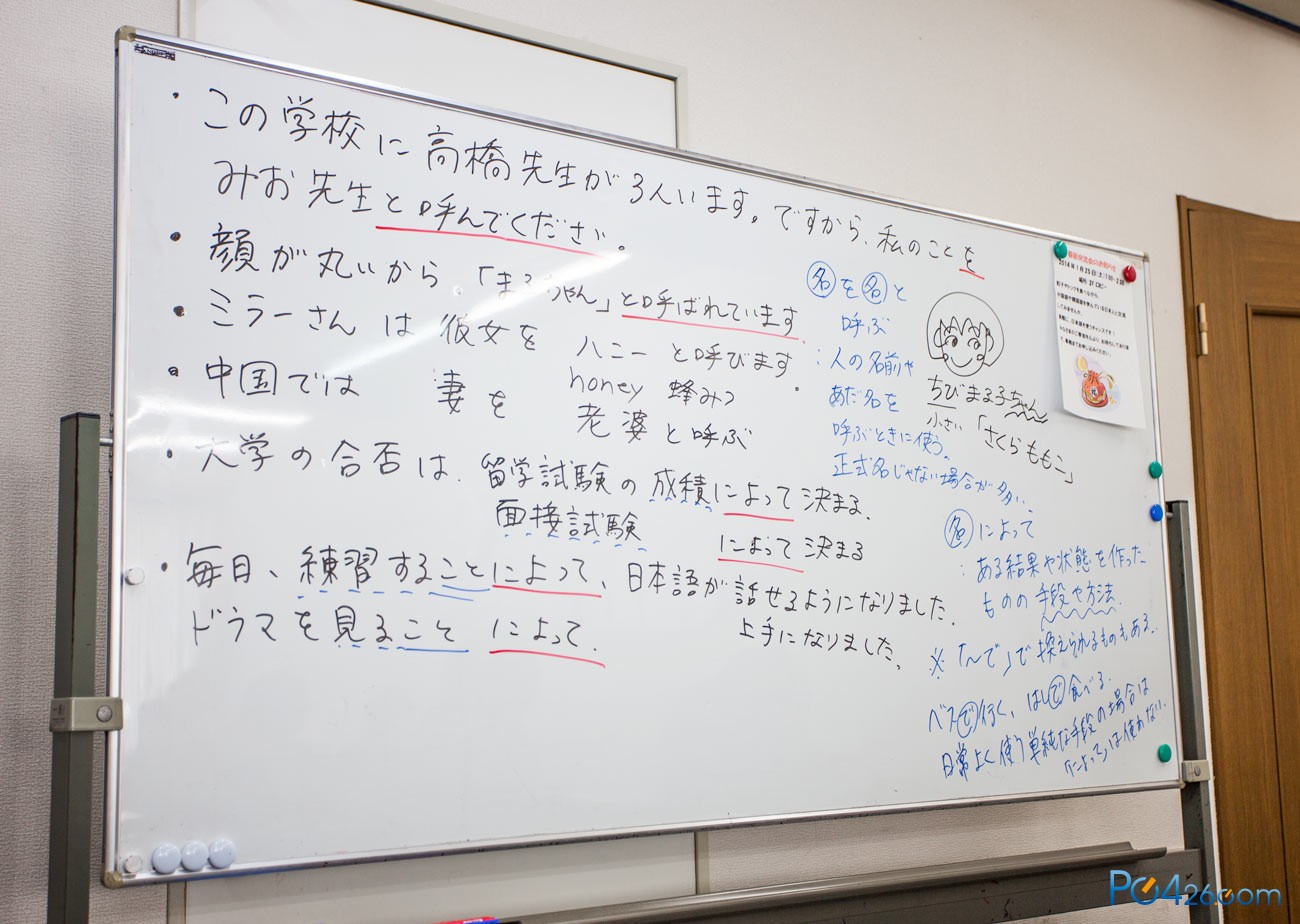 ・この学校に高橋先生が3人います。ですから、私のことを
みお先生と呼んでください。
・顔が丸いから「まるちゃん」と呼ばれています
・ミラーさんは彼女をハニーと呼びます。
honey 蜂みつ
・中国では妻を老婆と呼ぶ
・大学の合否は、留学試験の成績によって決まる.
面接試験 によって決まる
・毎日、練習することによって、日本語が話せるようになりました.
ドラマを見ることによって. 上手になりました、
名を名と
呼ぶ
:人の名前や
あだ名を
呼ぶときに使う。
正式名じゃない場合が多い.
ちびまる子ちゃん
小さい「さくらももこ」
名によって
:ある結果や状態を作った
ものの手段や方法.
※「〜で」で換えられるものもある.
バスで行く、はしで食べる.
日常よく使う単純な手段の場合は
「によって」は使わない.
2014年1月25日(土)
場所 2F ロビー
PC426.com